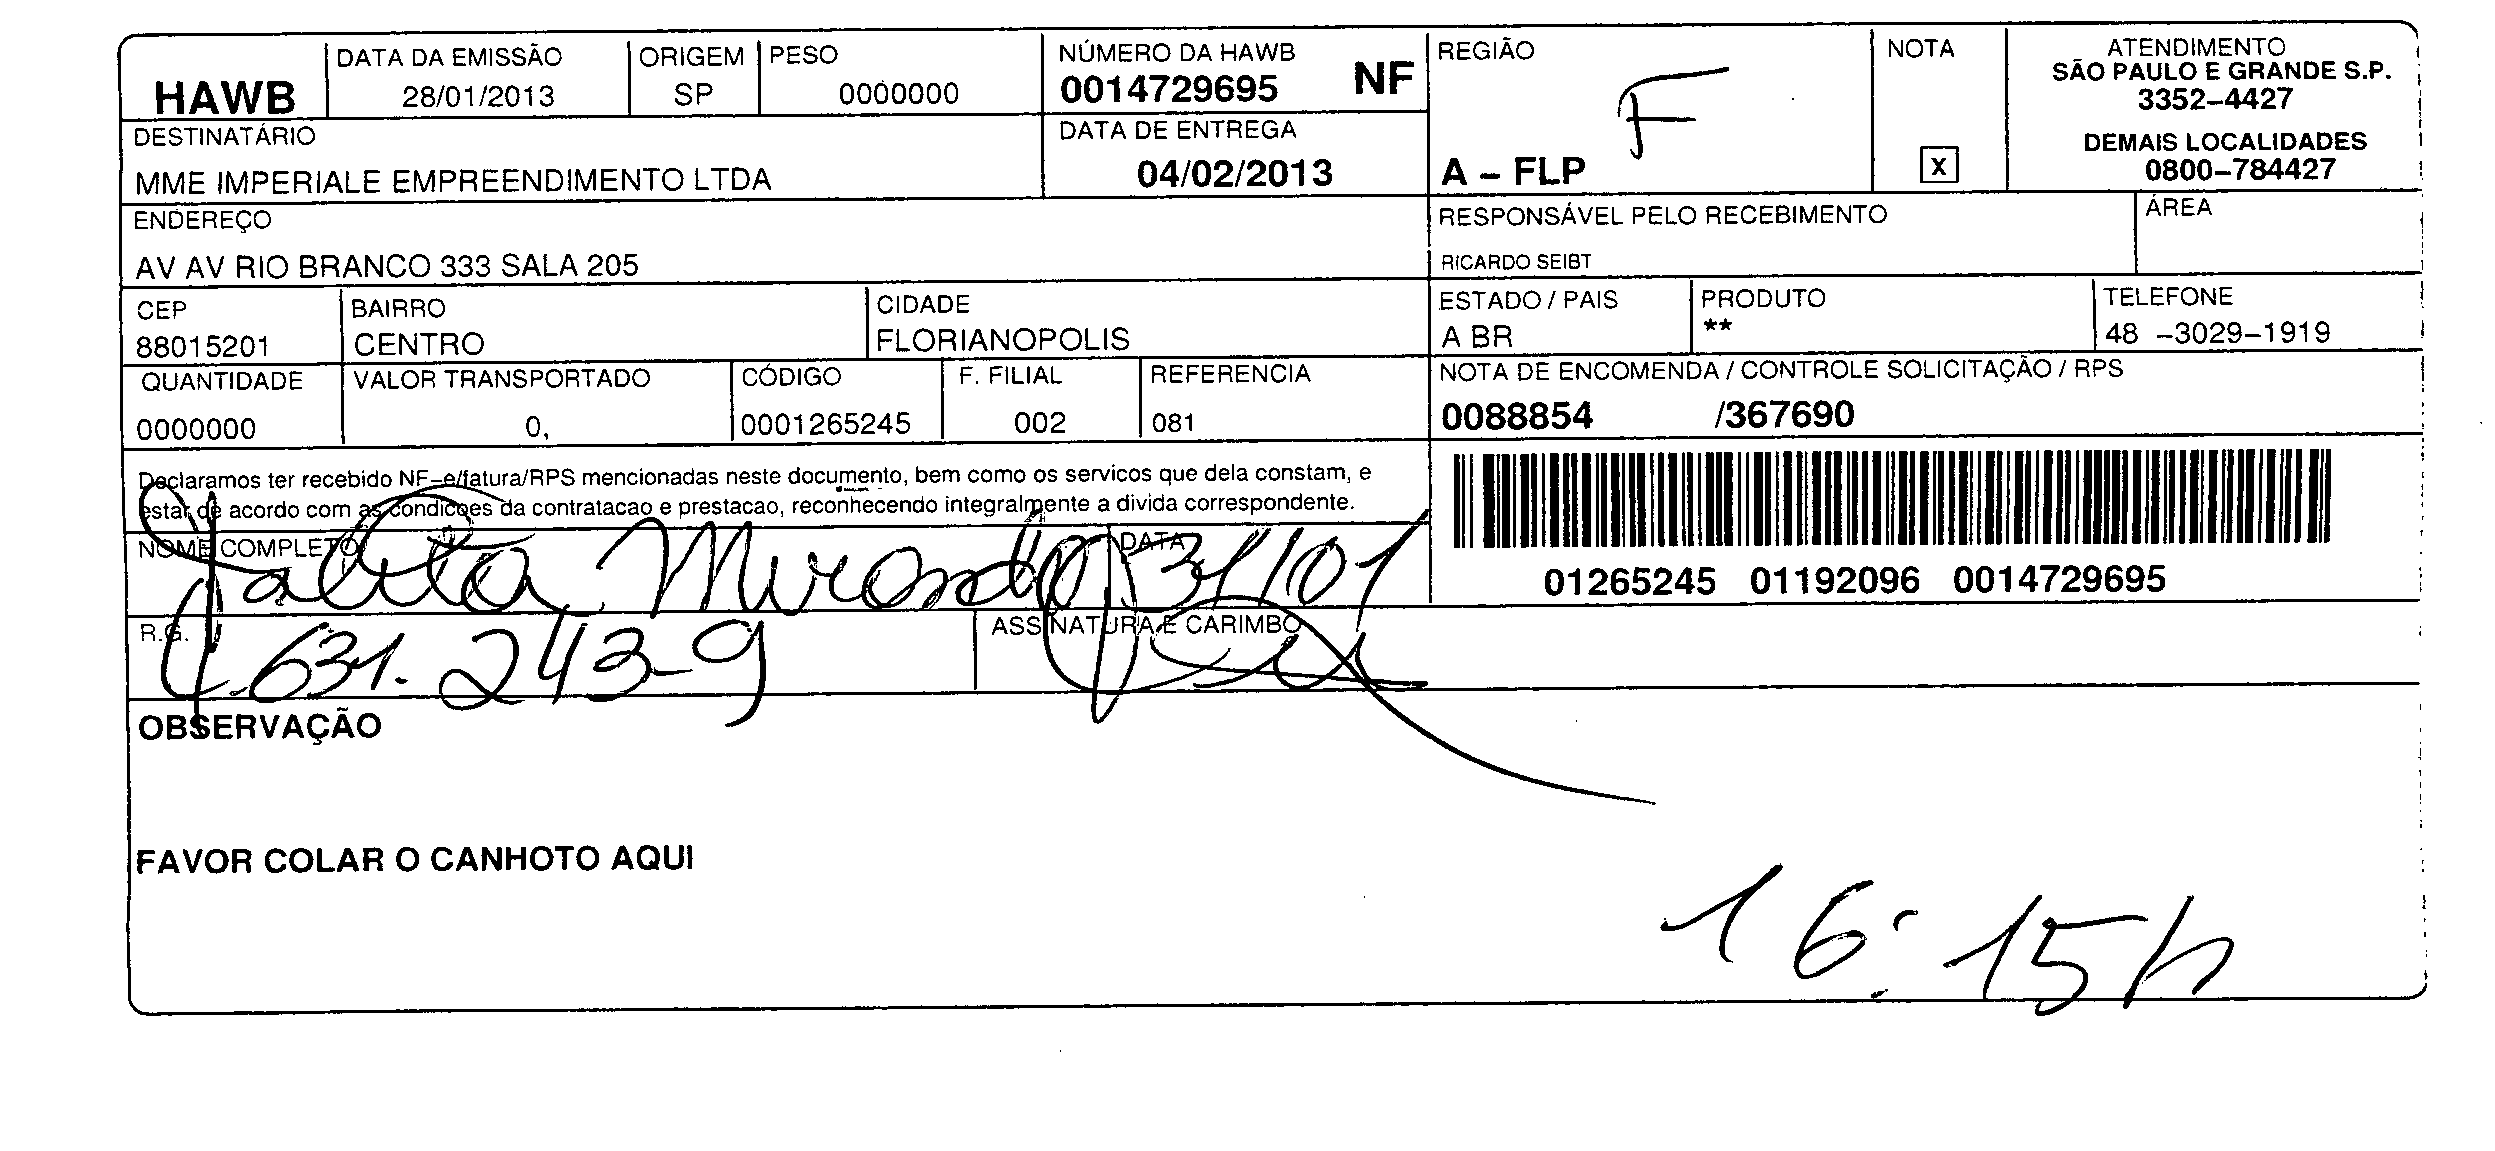 HAWB
DATA DA EMISSÃO
28/01/2013
ORIGEM
SP
PESO
0000000
NÚMERO DA HAWB
0014729695 NF
REGIÃO
F
A – FLP
NOTA
X
ATENDIMENTO
SÃO PAULO E GRANDE S.P.
3352–4427
DEMAIS LOCALIDADES
0800–784427
DESTINATÁRIO
MME IMPERIALE EMPREENDIMENTO LTDA
DATA DE ENTREGA
04/02/2013
ENDEREÇO
AV AV RIO BRANCO 333 SALA 205
RESPONSÁVEL PELO RECEBIMENTO
RICARDO SEIBT
ÁREA
CEP
88015201
BAIRRO
CENTRO
CIDADE
FLORIANOPOLIS
ESTADO / PAIS
A BR
PRODUTO
**
TELEFONE
48 –3029–1919
QUANTIDADE
0000000
VALOR TRANSPORTADO
0,
CÓDIGO
0001265245
F. FILIAL
002
REFERENCIA
081
NOTA DE ENCOMENDA / CONTROLE SOLICITAÇÃO / RPS
0088854 /367690
Declaramos ter recebido NF–e/fatura/RPS mencionadas neste documento, bem como os servicos que dela constam, e
estar de acordo com as condicoes da contratacao e prestacao, reconhecendo integralmente a divida correspondente.
01265245 01192096 0014729695
NOME COMPLETO
Talita Miranda
DATA
31/01
R.G.
631.243-9
ASSINATURA E CARIMBO
OBSERVAÇÃO
FAVOR COLAR O CANHOTO AQUI
16:15h